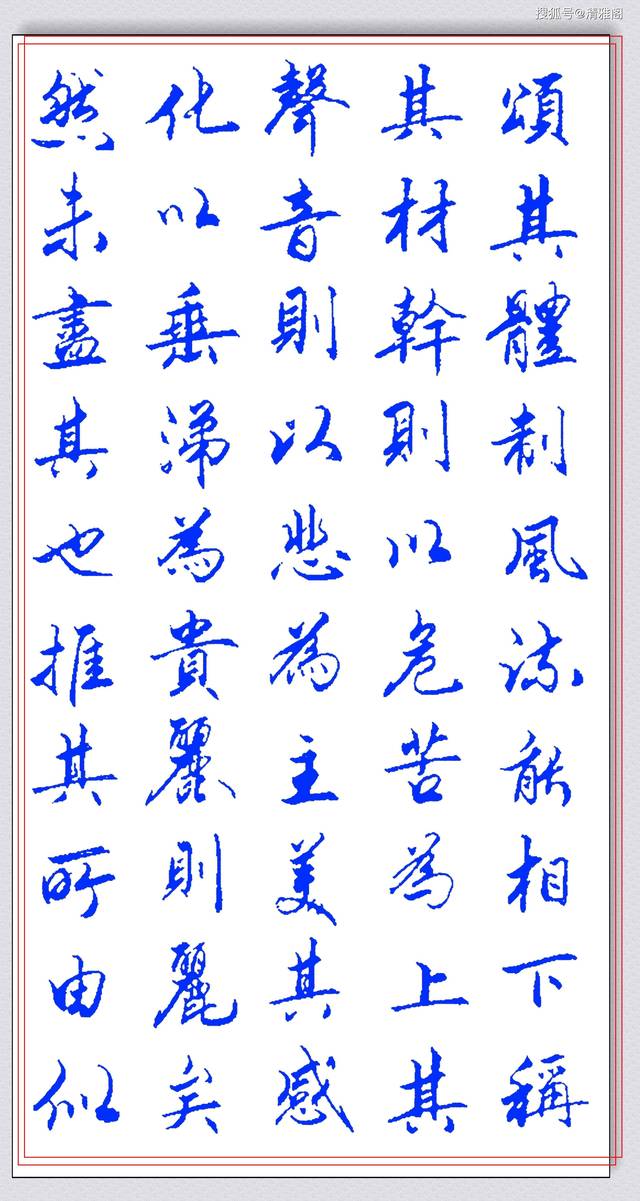 搜狐号@清雅阁
頌其體制風流能相下稱
其材幹則以危苦為上其
聲音則以悲為主美其感
化以垂涕為貴麗則麗矣
然未盡其也推其所由似